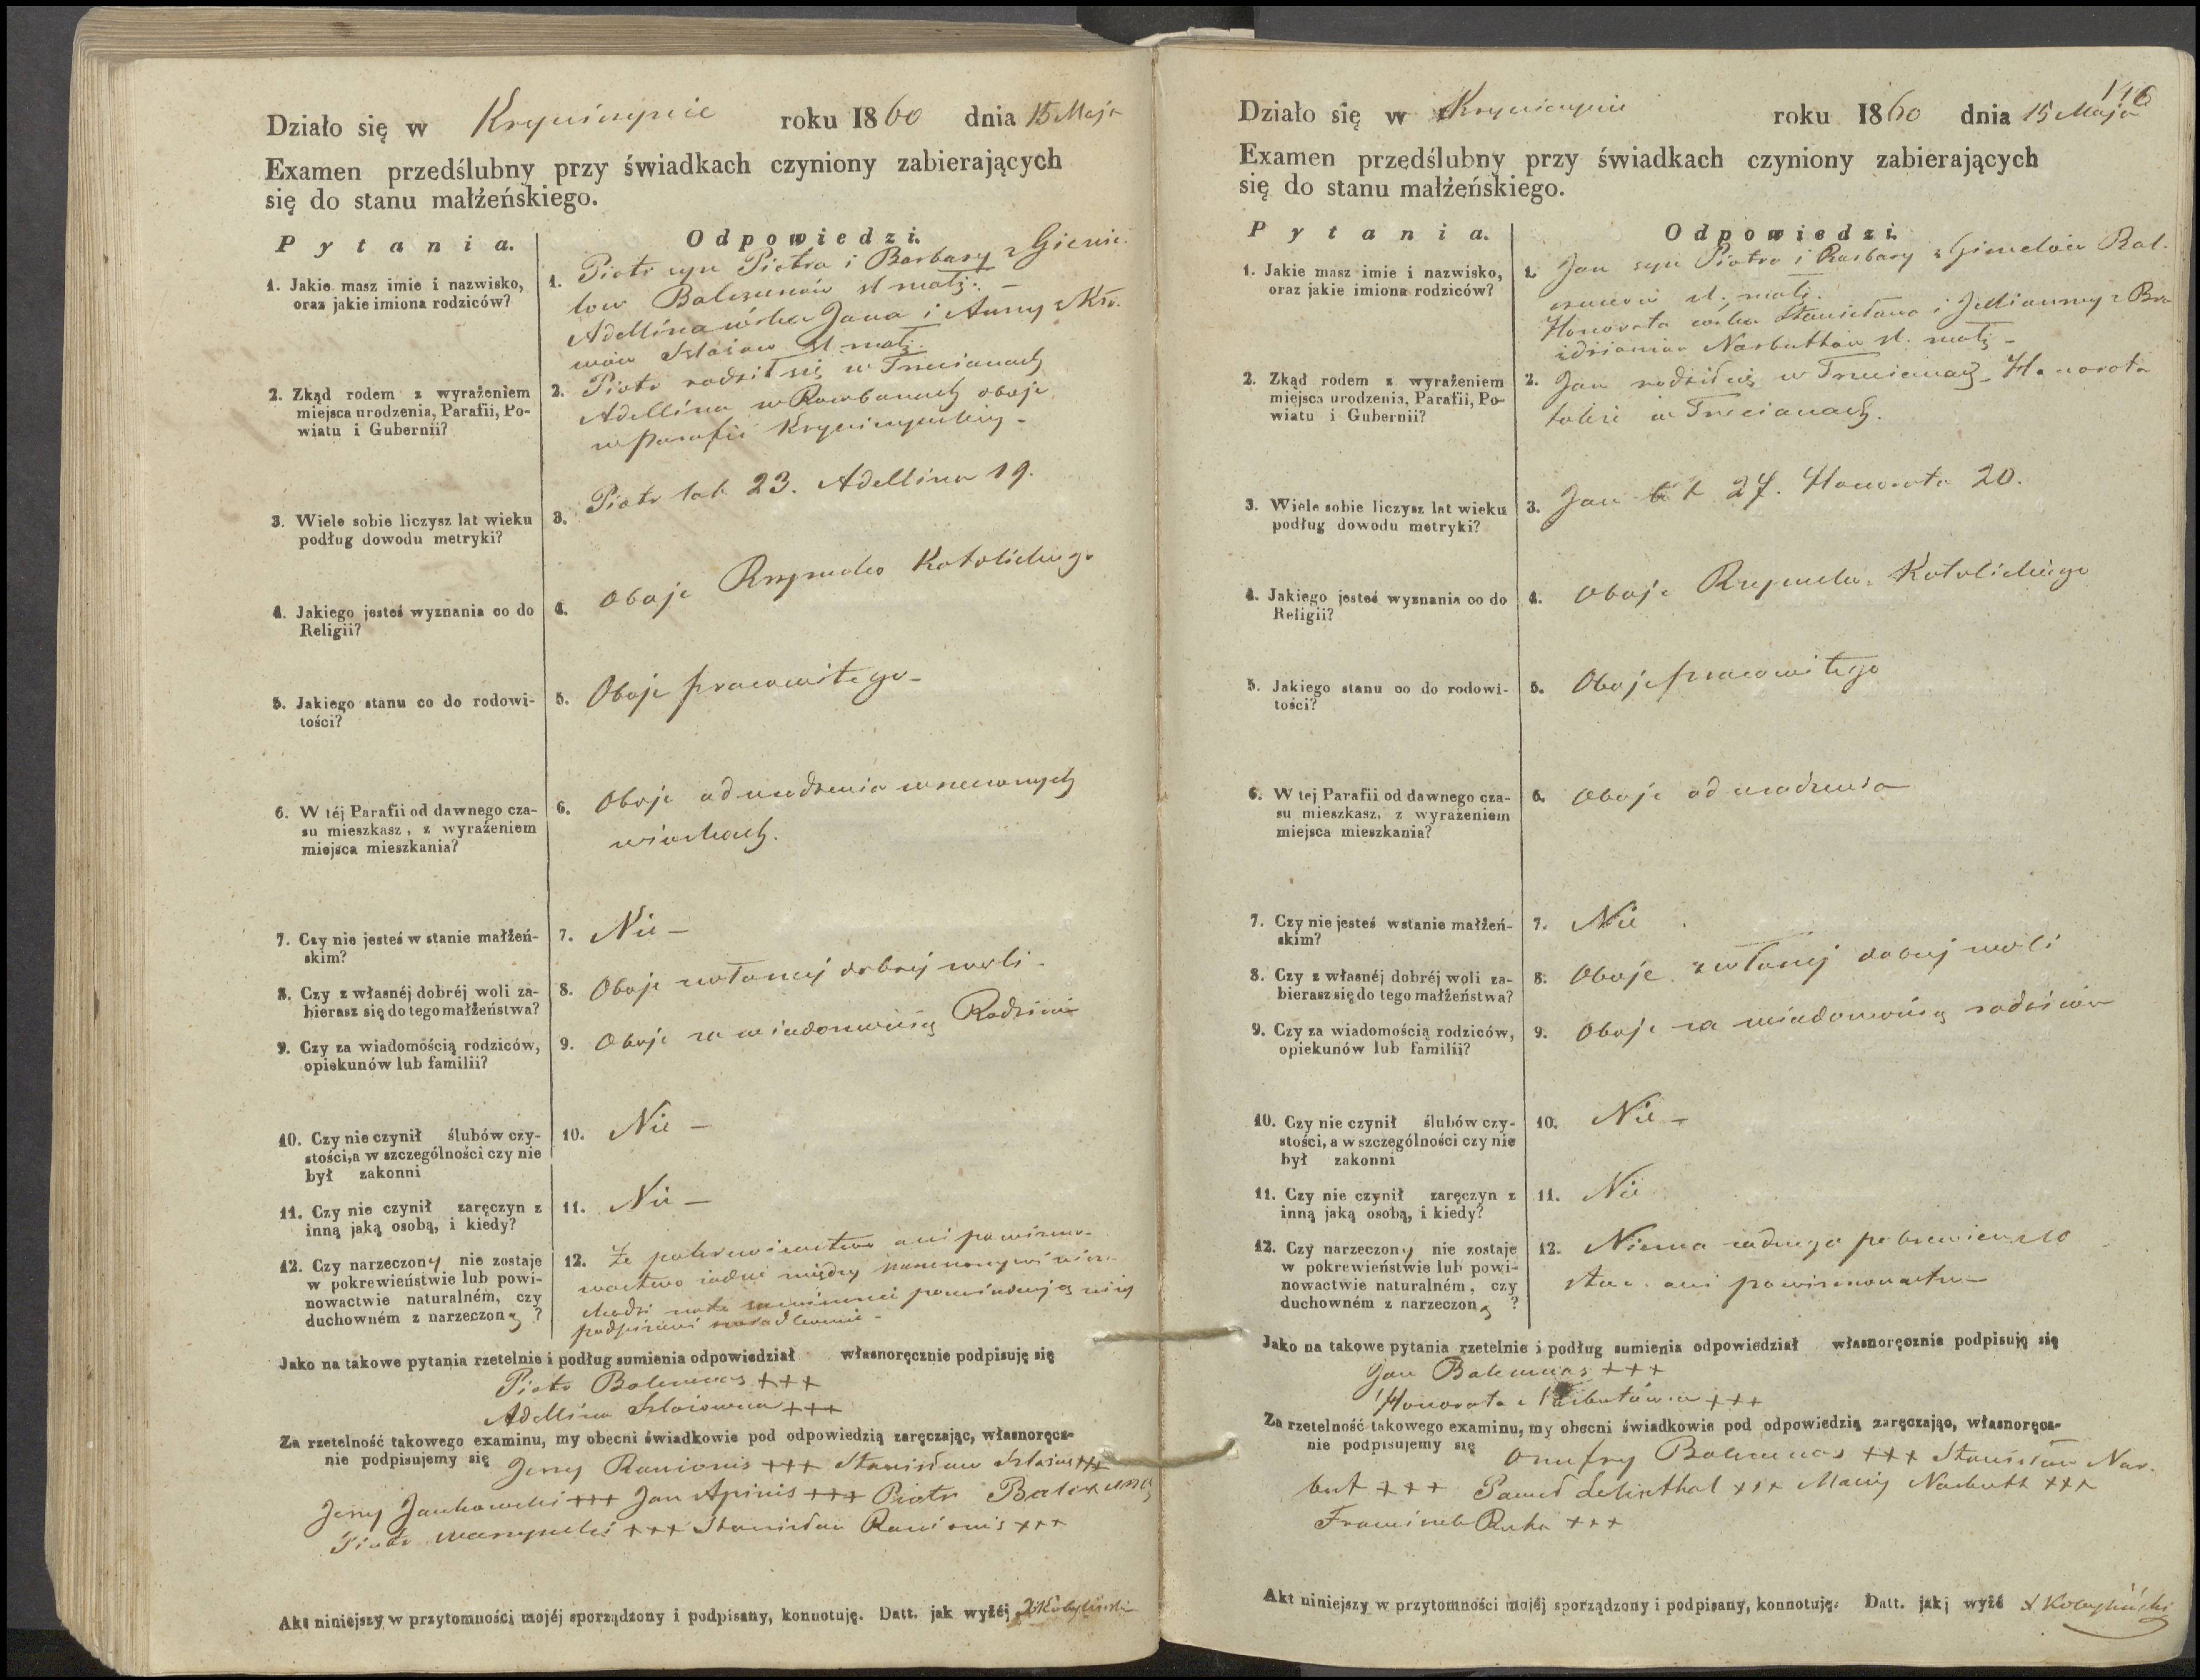 Działo się w Krynicznie roku 1860 dnia 15 Maja
Examen przedślubny przy świadkach czyniony zabierających
się do stanu małżeńskiego.
Pytania. Odpowiedzi.
1. Jakie masz imie i nazwisko,
oraz jakie imiona rodziców?
1. Piotr syn Piotra i Barbary z
Balczunów sł małż. –
Adellina córka Jana i Anny
małż.
2. Zkąd rodem z wyrażeniem
miejsca urodzenia, Parafii, Po-
wiatu i Gubernii?
2. Piotr rodził się w Trucianach
Adellina w oboje
w Parafii
3. Wiele sobie liczysz lat wieku
podług dowodu metryki?
3. Piotr lat 23. Adellina 19.
4. Jakiego jesteś wyznania co do
Religii?
4. Oboje Rzymsko Katolickiego
5. Jakiego stanu co do rodowi-
tości?
5. Oboje pracowitego –
6. W téj Parafii od dawnego cza-
su mieszkasz, z wyrażeniem
miejsca mieszkania?
6. Oboje od urodzenia w rzeczonych
wioskach.
7. Czy nie jesteś w stanie małżeń-
skim?
7. Nie –
8. Czy z własnéj dobréj woli za-
bierasz się do tego małżeństwa?
8. Oboje z własnej dobrej woli –
9. Czy za wiadomością rodziców,
opiekunów lub familii?
9. Oboje za wiadomością Rodziców
10. Czy nie czynił ślubów czy-
stości, a w szczególności czy nie
był zakonni
10. Nie –
11. Czy nie czynił zaręczyn z
inną jaką osobą, i kiedy?
11. Nie –
12. Czy narzeczony nie zostaje
w pokrewieństwie lub powi-
nowactwie naturalném, czy
duchowném z narzeczoną ?
12. Że pokrewieństwo ani powino-
wactwo żadne między
podpisani
Jako na takowe pytania rzetelnie i podług sumienia odpowiedział własnoręcznie podpisuję się
Piotr Balczunas +++
Adellina +++
Za rzetelność takowego examinu, my obecni świadkowie pod odpowiedzią zaręczając, własnoręcz-
nie podpisujemy się Jerzy Ranionis +++ Stanisław +++
Jerzy Jankowski +++ Jan Apinis +++ Piotr Balczunas
Piotr +++ Stanisław Ranionis +++
Akt niniejszy w przytomności mojéj sporządzony i podpisany, konnotuję. Datt. jak wyżéj Kobyliński
146
Działo się w roku 1860 dnia 15 Maja
Examen przedślubny przy świadkach czyniony zabierających
się do stanu małżeńskiego.
Pytania. Odpowiedzi.
1. Jakie masz imie i nazwisko,
oraz jakie imiona rodziców?
1. Jan syn Piotra i Barbary z Bal-
czunów sł. małż.
Honorata córka Stanisława i Julianny z
Narbuttów sł. małż –
2. Zkąd rodem z wyrażeniem
miejsca urodzenia, Parafii, Po-
wiatu i Gubernii?
2. Jan rodził się w Trucianach. Honorata
także w Trucianach.
3. Wiele sobie liczysz lat wieku
podług dowodu metryki?
3. Jan lat 27. Honorata 20.
4. Jakiego jesteś wyznania co do
Religii?
4. Oboje Rzymsko Katolickiego
5. Jakiego stanu co do rodowi-
tości?
5. Oboje pracowitego
6. W tej Parafii od dawnego cza-
su mieszkasz, z wyrażeniem
miejsca mieszkania?
6. Oboje od urodzenia
7. Czy nie jesteś w stanie małżeń-
skim?
7. Nie
8. Czy z własnéj dobréj woli za-
bierasz się do tego małżeństwa?
8. Oboje z własnej dobrej woli
9. Czy za wiadomością rodziców,
opiekunów lub familii?
9. Oboje za wiadomością rodziców
10. Czy nie czynił ślubów czy-
stości, a w szczególności czy nie
był zakonni
10. Nie –
11. Czy nie czynił zaręczyn z
inną jaką osobą, i kiedy?
11. Nie
12. Czy narzeczony nie zostaje
w pokrewieństwie lub powi-
nowactwie naturalném, czy
duchowném z narzeczoną ?
12. Niema żadnego pokrewień-
stwa ani powinowactwa
Jako na takowe pytania rzetelnie i podług sumienia odpowiedział własnoręcznie podpisuję się
Jan Balczunas +++
Honorata Narbutówna +++
Za rzetelność takowego examinu, my obecni świadkowie pod odpowiedzią zaręczając, własnoręcz-
nie podpisujemy się Onufry Balczunas +++ Stanisław Nar-
but +++ Paweł +++ Maciej Narbutt +++
Franciszek +++
Akt niniejszy w przytomności mojéj sporządzony i podpisany, konnotuję. Datt. jak wyżé Kobyliński